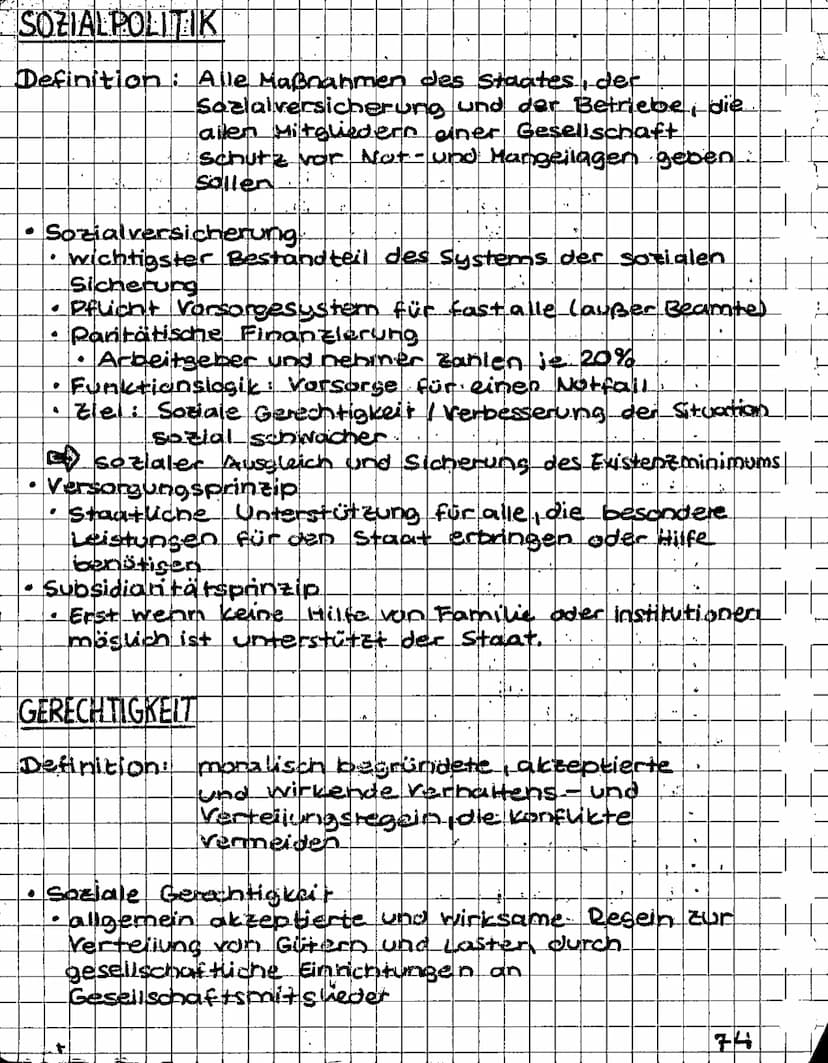 SOZIALPOLITIK
Definition: Alle Maßnahmen des Staates, der
Sozialversicherung und der Betriebe, die
allen Mitgliedern einer Gesellschaft
Schutz vor Not- und Mangellagen geben
sollen
• Sozialversicherung
• wichtigster Bestandteil des Systems der sozialen
Sicherung
• Pflicht Vorsorgesystem für fast alle (außer Beamte)
• Paritätische Finanzierung
• Arbeitgeber und nehmer zahlen je 20%
• Funktionslogik: Vorsorge für einen Notfall
• Ziel: Soziale Gerechtigkeit / Verbesserung der Situation
sozial schwacher
⇨ sozialer Ausgleich und Sicherung des Existenzminimums
• Versorgungsprinzip
• Staatliche Unterstützung für alle, die besondere
Leistungen für den Staat erbringen oder Hilfe
benötigen
• Subsidiaritätsprinzip
• Erst wenn keine Hilfe von Familie oder institutionen
möglich ist unterstützt der Staat.
GERECHTIGKEIT
Definition: moralisch begründete, akzeptierte
und wirkende Verhaltens- und
Verteilungsregeln, die Konflikte
vermeiden
• Soziale Gerechtigkeit
• allgemein akzeptierte und wirksame Regeln zur
Verteilung von Gütern und Lasten durch
gesellschaftliche Einrichtungen an
Gesellschaftsmitglieder
74